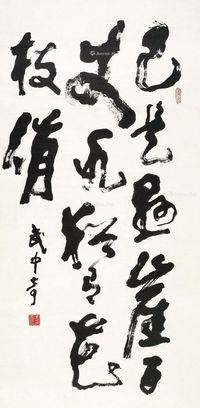 已是懸崖百
丈冰猶有花
枝俏
武中奇